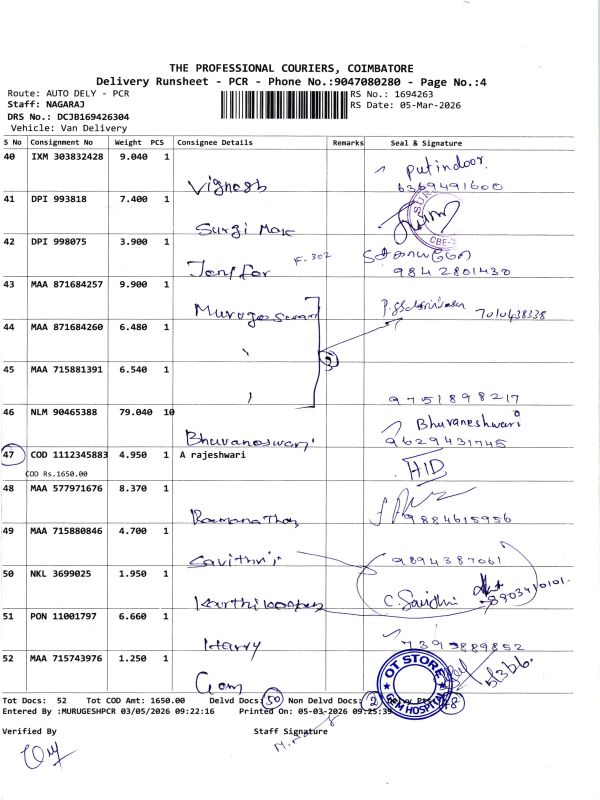 THE PROFESSIONAL COURIERS, COIMBATORE
Delivery Runsheet - PCR - Phone No.:9047080280 - Page No.:4
Route: AUTO DELY - PCR
RS No.: 1694263
Staff: NAGARAJ
RS Date: 05-Mar-2026
DRS No.: DCJB169426304
Vehicle: Van Delivery
S No Consignment No Weight PCS Consignee Details Remarks Seal & Signature
40 IXM 303832428 9.040 1 Vignesh Putindoor. 6369491600
41 DPI 993818 7.400 1 Surgi Max CBE-
42 DPI 998075 3.900 1 Jenifer F-302 9842801430
43 MAA 871684257 9.900 1 Murugeswari 7010438338
44 MAA 871684260 6.480 1 "
3
45 MAA 715881391 6.540 1 " 9751898217
46 NLM 90465388 79.040 10 Bhuvaneswari Bhuvaneshwari 9629431745
47 COD 1112345883 4.950 1 A rajeshwari HID
COD Rs.1650.00
48 MAA 577971676 8.370 1 9884615956
49 MAA 715880846 4.700 1 Savithri 9894387061
50 NKL 3699025 1.950 1 C. Savidhri 8903410101.
51 PON 11001797 6.660 1 Harry 7393889852
52 MAA 715743976 1.250 1 Gem OT STORE GEM HOSPITAL
Tot Docs: 52 Tot COD Amt: 1650.00 Delvd Docs: 50 Non Delvd Docs: 2 48
Entered By :MURUGESHPCR 03/05/2026 09:22:16 Printed On: 05-03-2026 09:25:39
Verified By Staff Signature